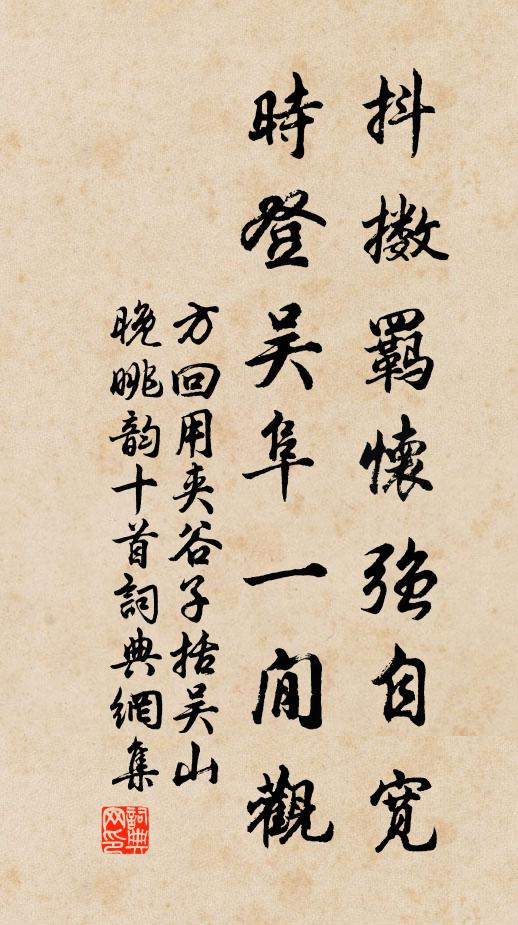 抖擻羈懷強自寬
時登吳阜一閒觀
方回用夾谷子括吳山
晚眺韵十首詞典網集
詞典网印